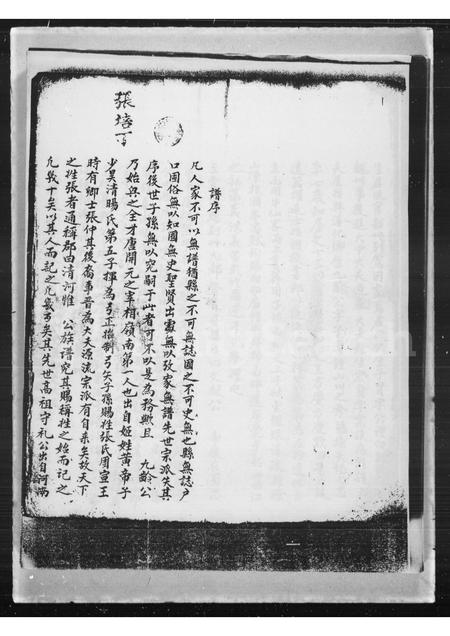 張培丁
譜序
凡人家不可以無譜猶縣之不可無誌國之不可無史也縣無誌戶
口國俗無以知國無史聖賢出處無以攷家無譜先世宗派失其
序後世子孫無以究嗣于此者可不以是為務歟且 九齡公
乃始興之全才唐開元之宰相嶺南第一人也出自姬姓黃帝子
少昊清暘氏第五子揮為弓正始制弓矢子孫賜姓張氏周宣王
時有卿士張仲其後裔事晉為大夫源流宗派有自來矣故天下
之姓張者通稱郡由清河惟 公族譜究其賜稱姓之始而記之
凡幾十矣以其人而記之凡幾弓矣其先世高祖守礼公出自河南